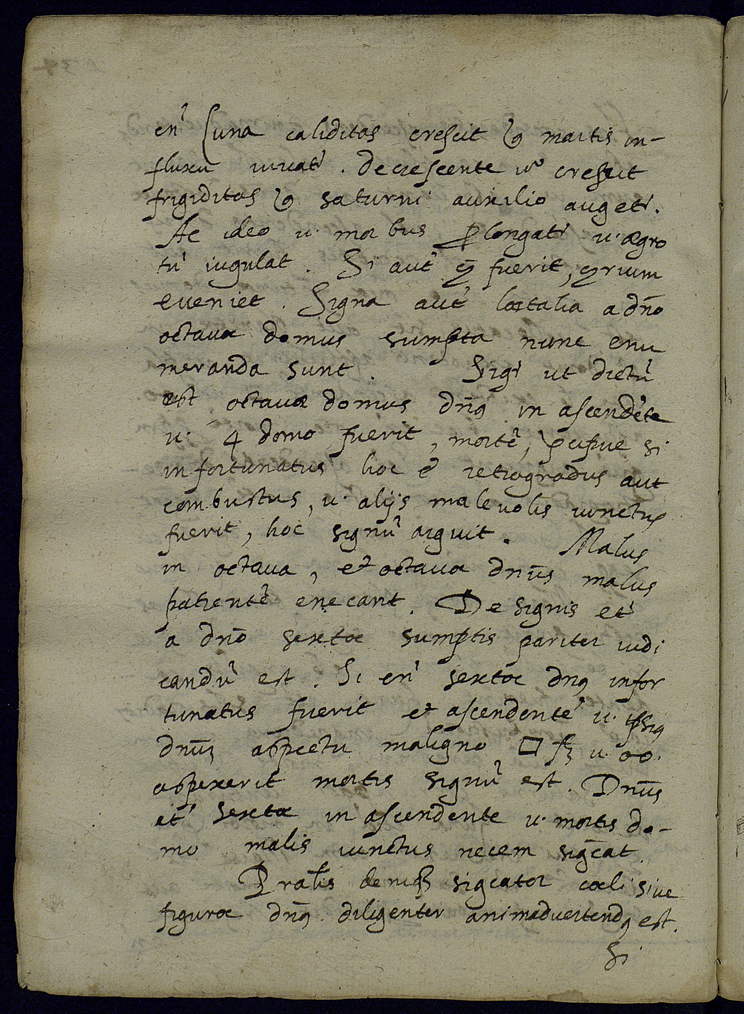 en̄ Luna caliditas crescit qꝫ martis in-
fluxu iuuat̄. decrescente ū crescit
frigiditas qꝫ saturni auxilio auget̄.
Ac ideo u. morbus ꝓlongat̄ u. ægro
tū iugulat. Si aut̄ fuerit,
eueniet. Signa aut̄ lætalia a dn̄o
octauæ domus sumpta nunc enu
meranda sunt. Siḡ ut dictū
est octauæ domus dn̄s in ascendēte
u. 4 domo fuerit, mortē, p̄cipue si
infortunatus hoc ē retrogradus aut
combustus, u. alijs maleuolis iunctus
fuerit, hoc signū arguit. Malus
in octaua, et octaua dn̄us malus
patientē enecant. De signis et̄
a dn̄o sextæ sumptis pariter iudi
candū est. Si en̄ sextæ dn̄s infor
tunatus fuerit et ascendentē u. ipsiꝰ
dn̄us aspectu maligno □ u.
aspexerit mortis signū est. Dn̄us
et̄ sextæ in ascendente u. mortis do-
mo malis iunctus necem sig̅cat.
deniqꝫ sig̅cator cœli siue
figuræ dn̄s diligenter animaduertendꝰ est.
Si